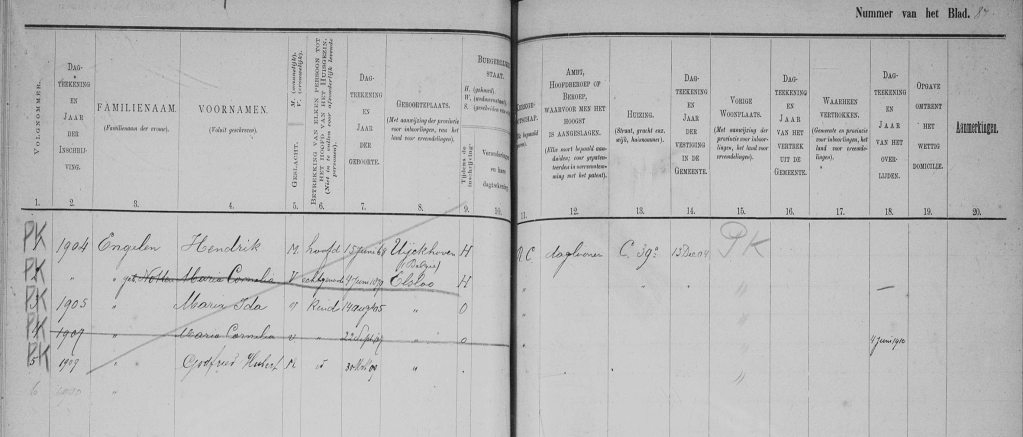 Nummer van het Blad. 84
VOLGNOMMER.
DAGTEEKENING EN JAAR DER INSCHRIJVING.
FAMILIENAAM.
(Familienaam der vrouw).
VOORNAMEN.
(Voluit geschreven).
GESLACHT. M. (mannelijk). V. (vrouwelijk).
BETREKKING VAN ELKEN PERSOON TOT HET HOOFD VAN HET HUISGEZIN.
DAGTEEKENING EN JAAR DER GEBOORTE.
GEBOORTEPLAATS.
(Met aanwijzing der provincie voor inboorlingen, van het land voor vreemdelingen).
BURGERLIJKE STAAT.
Tijdens de inschrijving.
AMBT, HOOFDBEROEP OF BEROEP, WAARVOOR MEN HET HOOGST IS AANGESLAGEN.
HUIZING.
(Straat, gracht enz. wijk, huisnommer).
DAGTEEKENING EN JAAR DER VESTIGING IN DE GEMEENTE.
VORIGE WOONPLAATS.
(Met aanwijzing der provincie voor inboorlingen, het land voor vreemdelingen).
DAGTEEKENING EN JAAR VAN HET VERTREK UIT DE GEMEENTE.
WAARHEEN VERTROKKEN.
(Gemeente en provincie voor inboorlingen, land voor vreemdelingen).
DAGTEEKENING EN JAAR VAN HET OVERLIJDEN.
OPGAVE OMTRENT HET WETTIG DOMICILIE.
Aanmerkingen.
1. 2. 3. 4. 5. 6. 7. 8. 9. 10. 11. 12. 13. 14. 15. 16. 17. 18. 19. 20.
PK 1904 Engelen Hendrik M hoofd 15 Juni 68 Uijckhoven (België) H R C daglooner C. 39a 13 Dec 04 PK
PK " " Maria Cornelia V echtgenoote Elsloo H " " " " —
PK 1905 " Maria Ida v kind 14 aug 05 " O "
PK 1907 " Maria Cornelia v " 22 Sept 07 " o " 4 Juni 1910
PK 5 1909 Godfried Hubert M 09 "
6 "